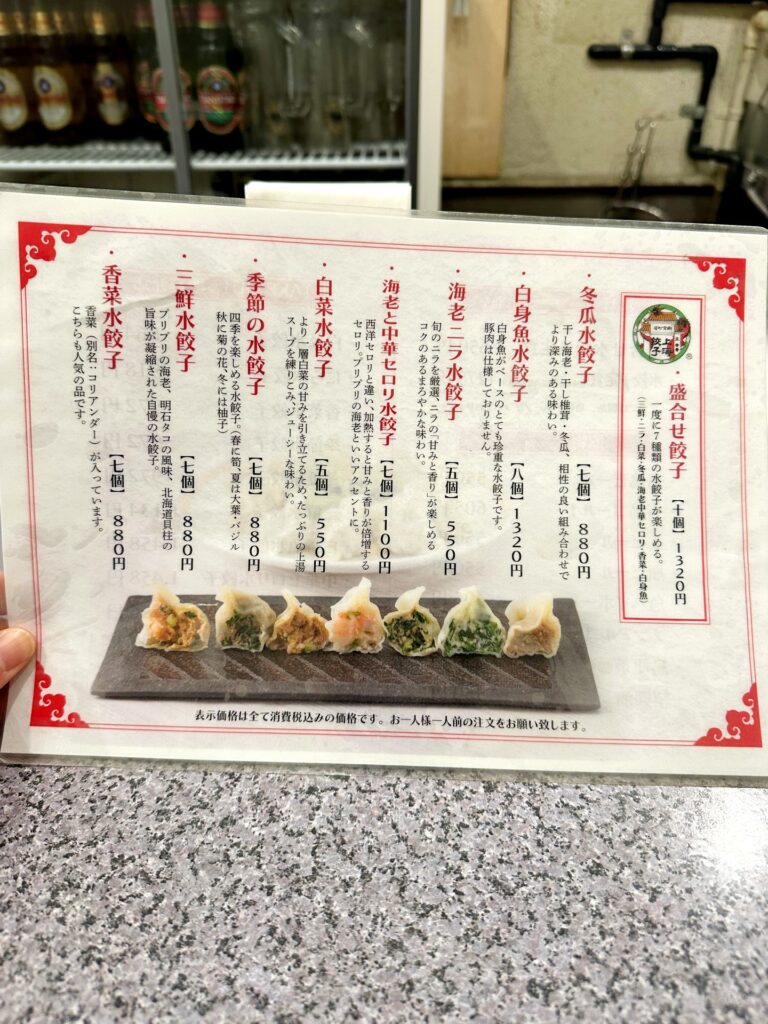 ・盛合せ餃子 【十個】 1320円
一度に7種類の水餃子が楽しめる。
(三鮮・ニラ・白菜・冬瓜・海老中華セロリ・香菜・白身魚)
上海
餃子
・冬瓜水餃子 【七個】 880円
干し海老・干し椎茸・冬瓜、相性の良い組み合わせで
より深みのある味わい。
・白身魚水餃子 【八個】 1320円
白身魚がベースのとても珍重な水餃子です。
豚肉は仕様しておりません。
・海老ニラ水餃子 【五個】 550円
旬のニラを厳選、ニラの「甘みと香り」が楽しめる
コクのあるまろやかな味わい。
・海老と中華セロリ水餃子 【七個】 1100円
西洋セロリと違い、加熱すると甘みと香りが倍増する
セロリ。プリプリの海老といいアクセントに。
・白菜水餃子 【五個】 550円
より一層白菜の甘みを引き立てるため、たっぷりの上湯
スープを練りこみ、ジューシーな味わい。
・季節の水餃子 【七個】 880円
四季を楽しめる水餃子。(春に筍、夏は大葉・バジル
秋に菊の花、冬には柚子)
・三鮮水餃子 【七個】 880円
プリプリの海老、明石タコの風味、北海道貝柱の
旨味が凝縮された自慢の水餃子。
・香菜水餃子 【七個】 880円
香菜(別名:コリアンダー)が入っています。
こちらも人気の品です。
表示価格は全て消費税込みの価格です。お一人様一人前の注文をお願い致します。